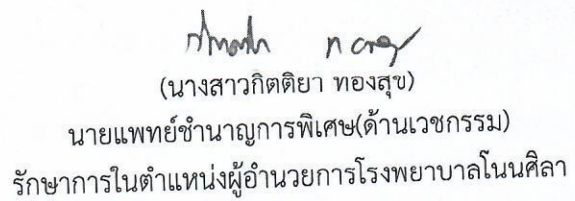 (นางสาวกิตติยา ทองสุข)
นายแพทย์ชำนาญการพิเศษ(ด้านเวชกรรม)
รักษาการในตำแหน่งผู้อำนวยการโรงพยาบาลโนนศิลา